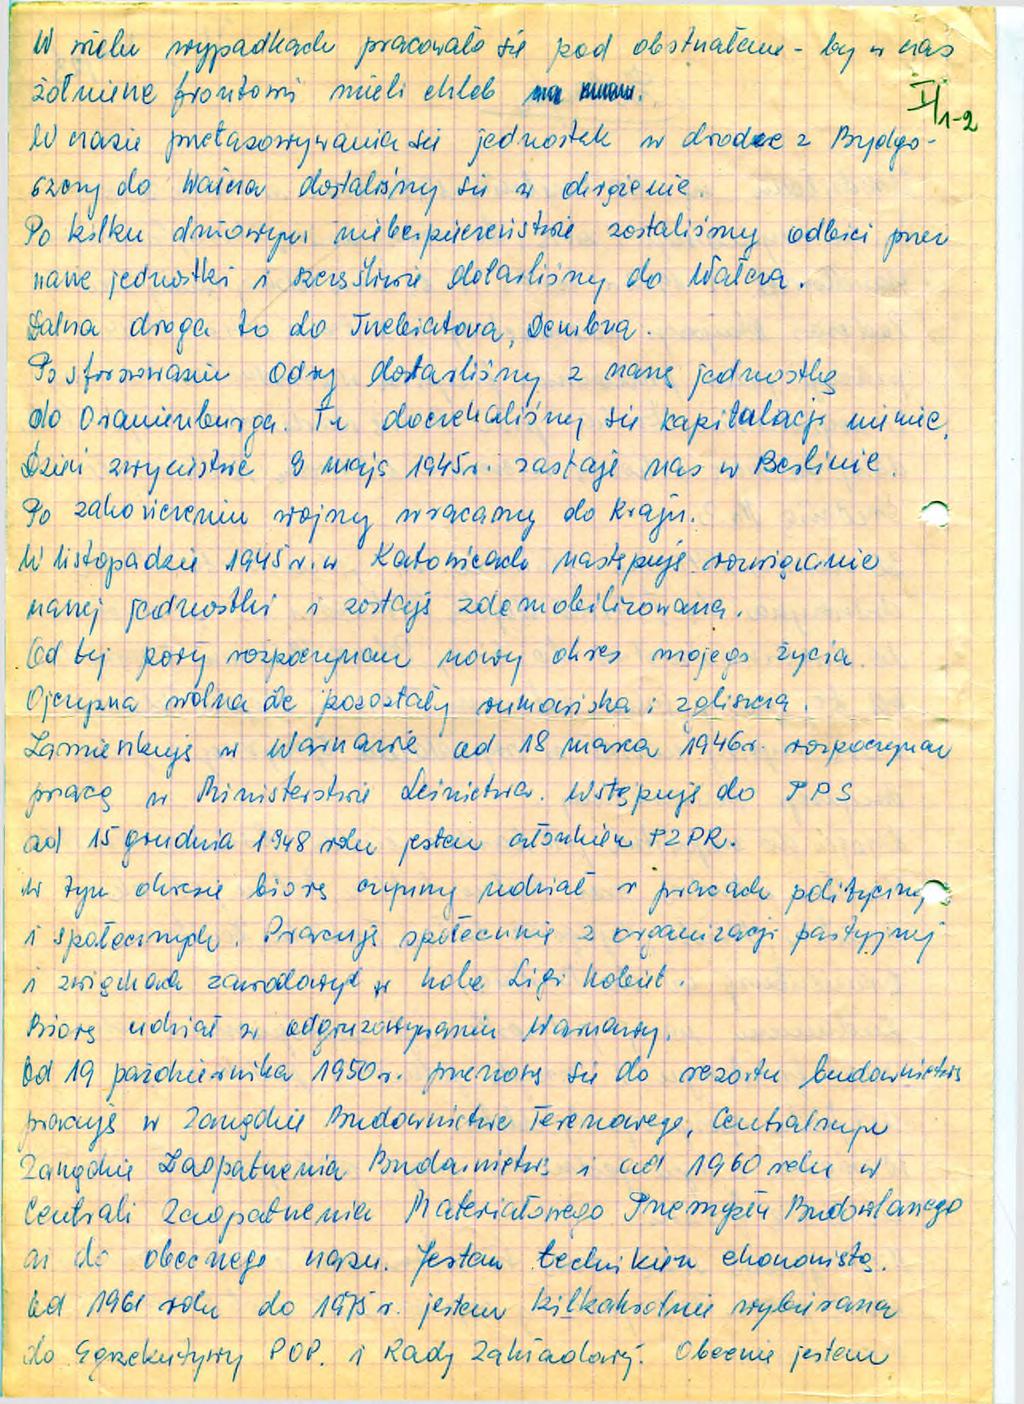 W wielu wypadkach pracowało się pod obstrzałem - by w czas
żołnierze frontowi mieli chleb
II/1-2
W czasie przetasowywania się jednostek w drodze z Bydgo-
szczy do Wałcza dostaliśmy się w okrążenie.
Po kilku dniowym niebezpieczeństwie zostaliśmy odbici przez
nasze jednostki i szczęśliwie dotarliśmy do Wałcza.
Dalsza droga to do Trzebiatowa, Dembna.
Po sforsowaniu Odry dotarliśmy z naszą jednostką
do Oranienburga. Tu doczekaliśmy się kapitulacji niemiec.
Dzień zwycięstwa 9 maja 1945 r. zastaje nas w Berlinie.
Po zakończeniu wojny wracamy do Kraju.
W listopadzie 1945 r. w Katowicach następuje rozwiązanie
naszej jednostki i zostaję zdemobilizowana.
Od tej pory rozpoczynam nowy okres mojego życia.
Ojczyzna wolna ale pozostały rumowiska i zgliszcza.
Zamieszkuję w Warszawie od 18 marca 1946 r. rozpoczynam
pracę w Ministerstwie Leśnictwa. Wstępuję do PPS
od 15 grudnia 1948 roku jestem członkiem PZPR.
W tym okresie biorę czynny udział w pracach politycznych
i społecznych. Pracuję społecznie z organizacji partyjnej
i związkach zawodowych w kole Ligi Kobiet.
Biorę udział w odgruzowywaniu Warszawy.
Od 19 października 1950 r. przenoszę się do resortu budownictwa
pracuję w Zarządzie Budownictwa Terenowego, Centralnym
Zarządzie Zaopatrzenia Budownictwa i od 1960 roku w
Centrali Zaopatrzenia Materiałowego Przemysłu Budowlanego
aż do obecnego czasu. Jestem technikiem ekonomistą.
Od 1961 roku do 1975 r. jestem kilkakrotnie wybierana
do Egzekutywy POP. i Rady Zakładowej. Obecnie jestem